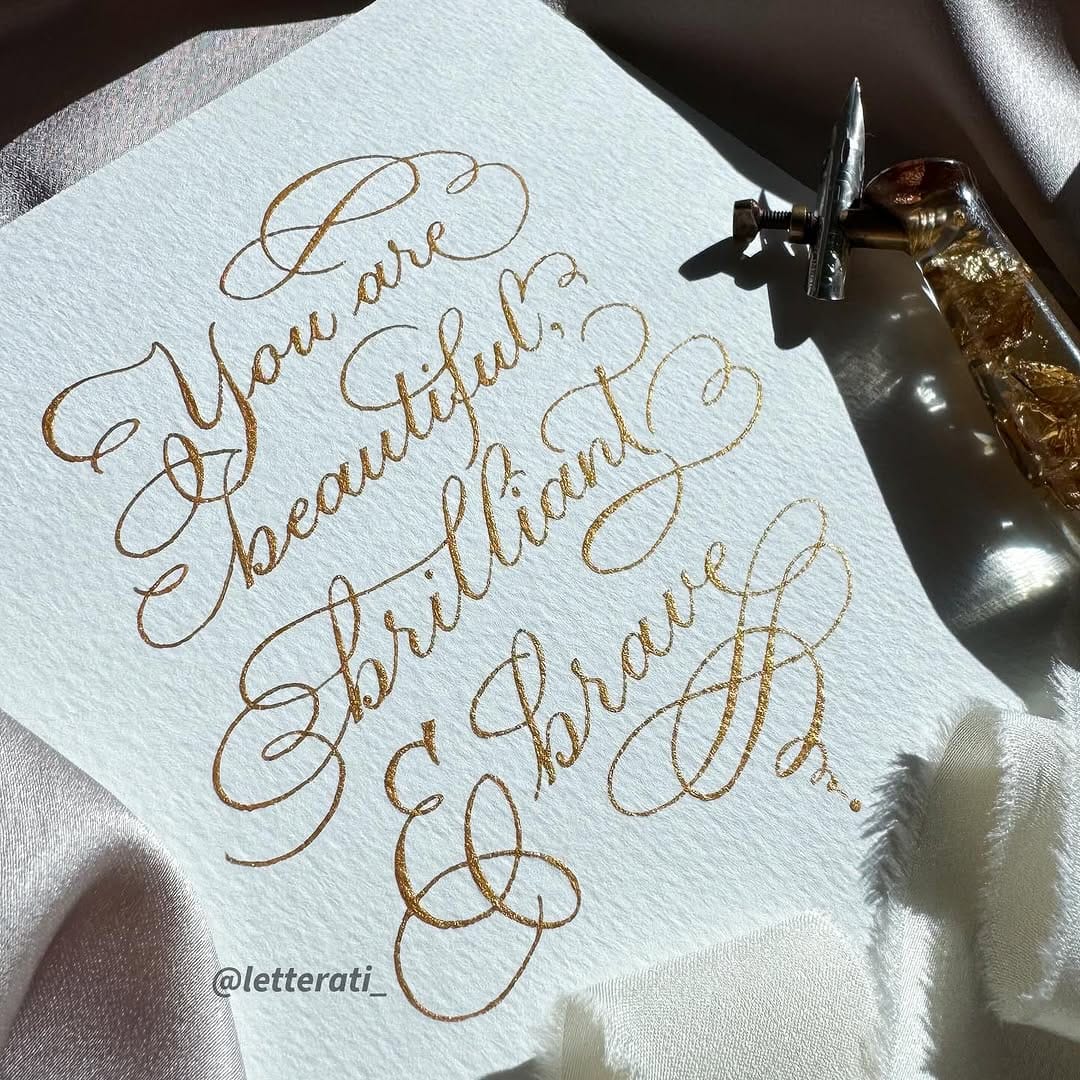 You are
beautiful,
brilliant
& brave
@letterati_